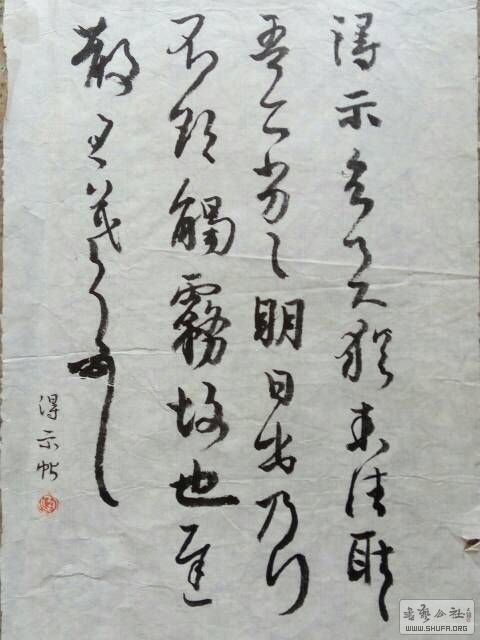 得示知足下猶未佳耿耿
吾亦劣劣明日出乃行
不欲觸霧故也遲
散王羲之頓首
得示帖
書藝公社
WWW.SHUFA.ORG